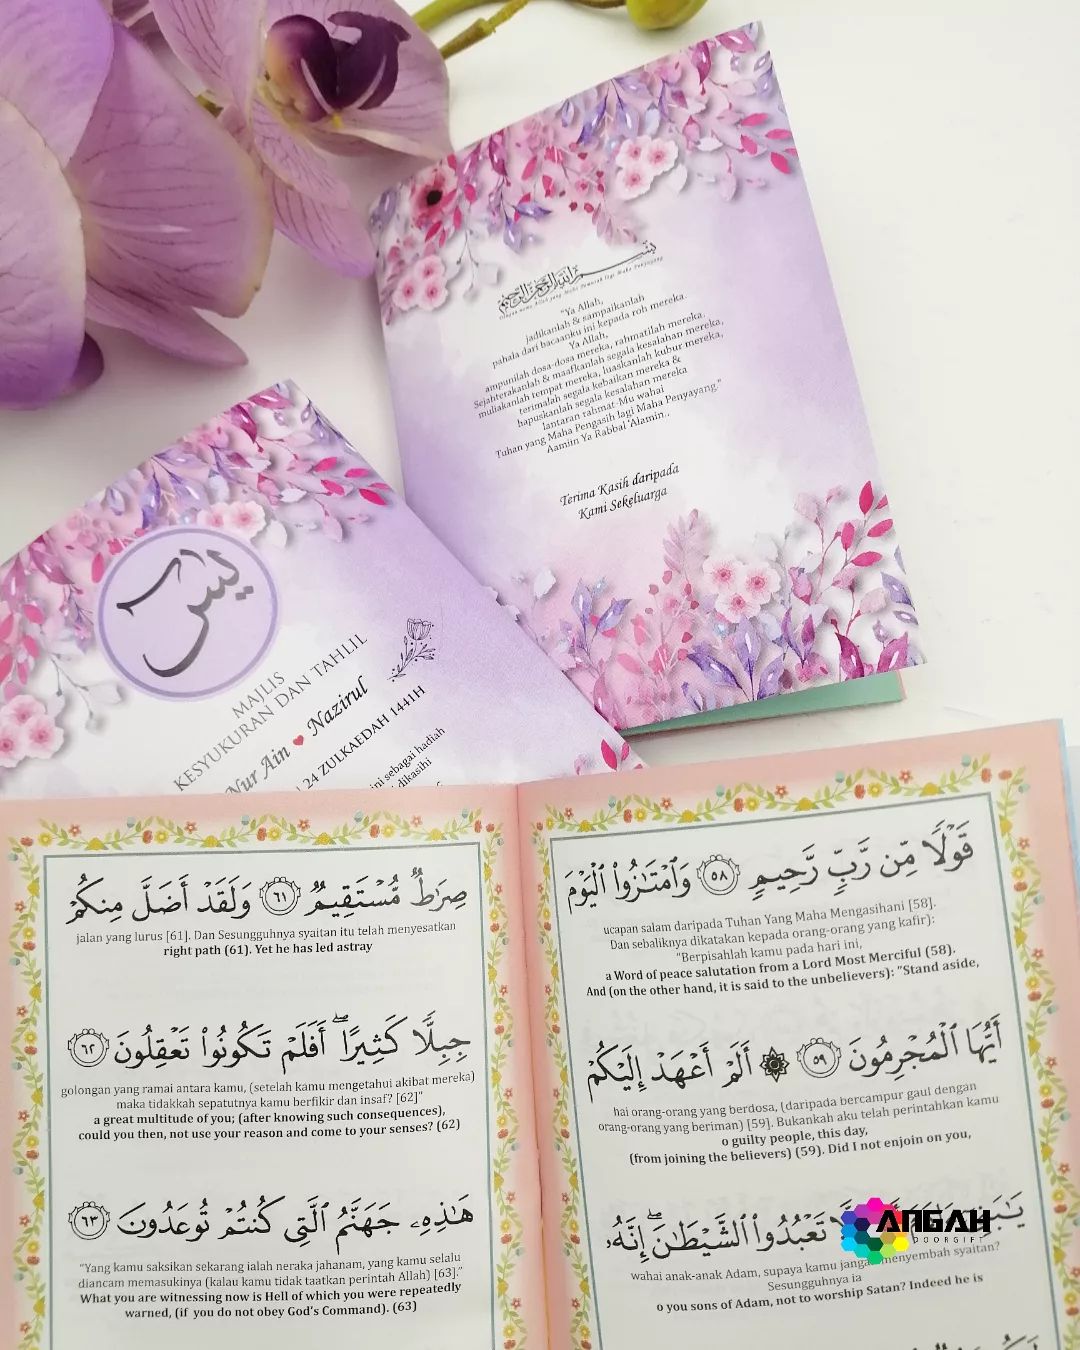 بسم الله الرحمن الرحيم
Dengan nama Allah yang Maha Pemurah lagi Maha Penyayang
"Ya Allah,
jadikanlah & sampaikanlah
pahala dari bacaanku ini kepada roh mereka.
Ya Allah,
ampunilah dosa-dosa mereka, rahmatilah mereka.
Sejahterakanlah & maafkanlah segala kesalahan mereka,
muliakanlah tempat mereka, luaskanlah kubur mereka,
terimalah segala kebaikan mereka &
hapuskanlah segala kesalahan mereka
lantaran rahmat-Mu wahai
Tuhan yang Maha Pengasih lagi Maha Penyayang."
Aamiin Ya Rabbal 'Alamin..
Terima Kasih daripada
Kami Sekeluarga
يس
MAJLIS
KESYUKURAN DAN TAHLIL
Nur Ain ❤ Nazirul
24 ZULKAEDAH 1441H
ini sebagai hadiah
dikasihi
قَوْلًا مِّن رَّبٍّ رَّحِيمٍ ٥٨ وَامْتَازُوا الْيَوْمَ
ucapan salam daripada Tuhan Yang Maha Mengasihani [58].
Dan sebaliknya dikatakan kepada orang-orang yang kafir):
"Berpisahlah kamu pada hari ini,
a Word of peace salutation from a Lord Most Merciful (58).
And (on the other hand, it is said to the unbelievers): "Stand aside,
أَيُّهَا الْمُجْرِمُونَ ٥٩ ۞ أَلَمْ أَعْهَدْ إِلَيْكُمْ
hai orang-orang yang berdosa, (daripada bercampur gaul dengan
orang-orang yang beriman) [59]. Bukankah aku telah perintahkan kamu
o guilty people, this day,
(from joining the believers) (59). Did I not enjoin on you,
لَّا تَعْبُدُوا الشَّيْطَانَ ۖ إِنَّهُ
wahai anak-anak Adam, supaya kamu jangan menyembah syaitan?
Sesungguhnya ia
o you sons of Adam, not to worship Satan? Indeed he is
صِرَاطٌ مُّسْتَقِيمٌ ٦١ وَلَقَدْ أَضَلَّ مِنكُمْ
jalan yang lurus [61]. Dan Sesungguhnya syaitan itu telah menyesatkan
right path (61). Yet he has led astray
جِبِلًّا كَثِيرًا ۖ أَفَلَمْ تَكُونُوا تَعْقِلُونَ ٦٢
golongan yang ramai antara kamu, (setelah kamu mengetahui akibat mereka)
maka tidakkah sepatutnya kamu berfikir dan insaf? [62]"
a great multitude of you; (after knowing such consequences),
could you then, not use your reason and come to your senses? (62)
هَٰذِهِ جَهَنَّمُ الَّتِي كُنتُمْ تُوعَدُونَ ٦٣
"Yang kamu saksikan sekarang ialah neraka jahanam, yang kamu selalu
diancam memasukinya (kalau kamu tidak taatkan perintah Allah) [63]."
What you are witnessing now is Hell of which you were repeatedly
warned, (if you do not obey God's Command). (63)
ANGAH
DOORGIFT